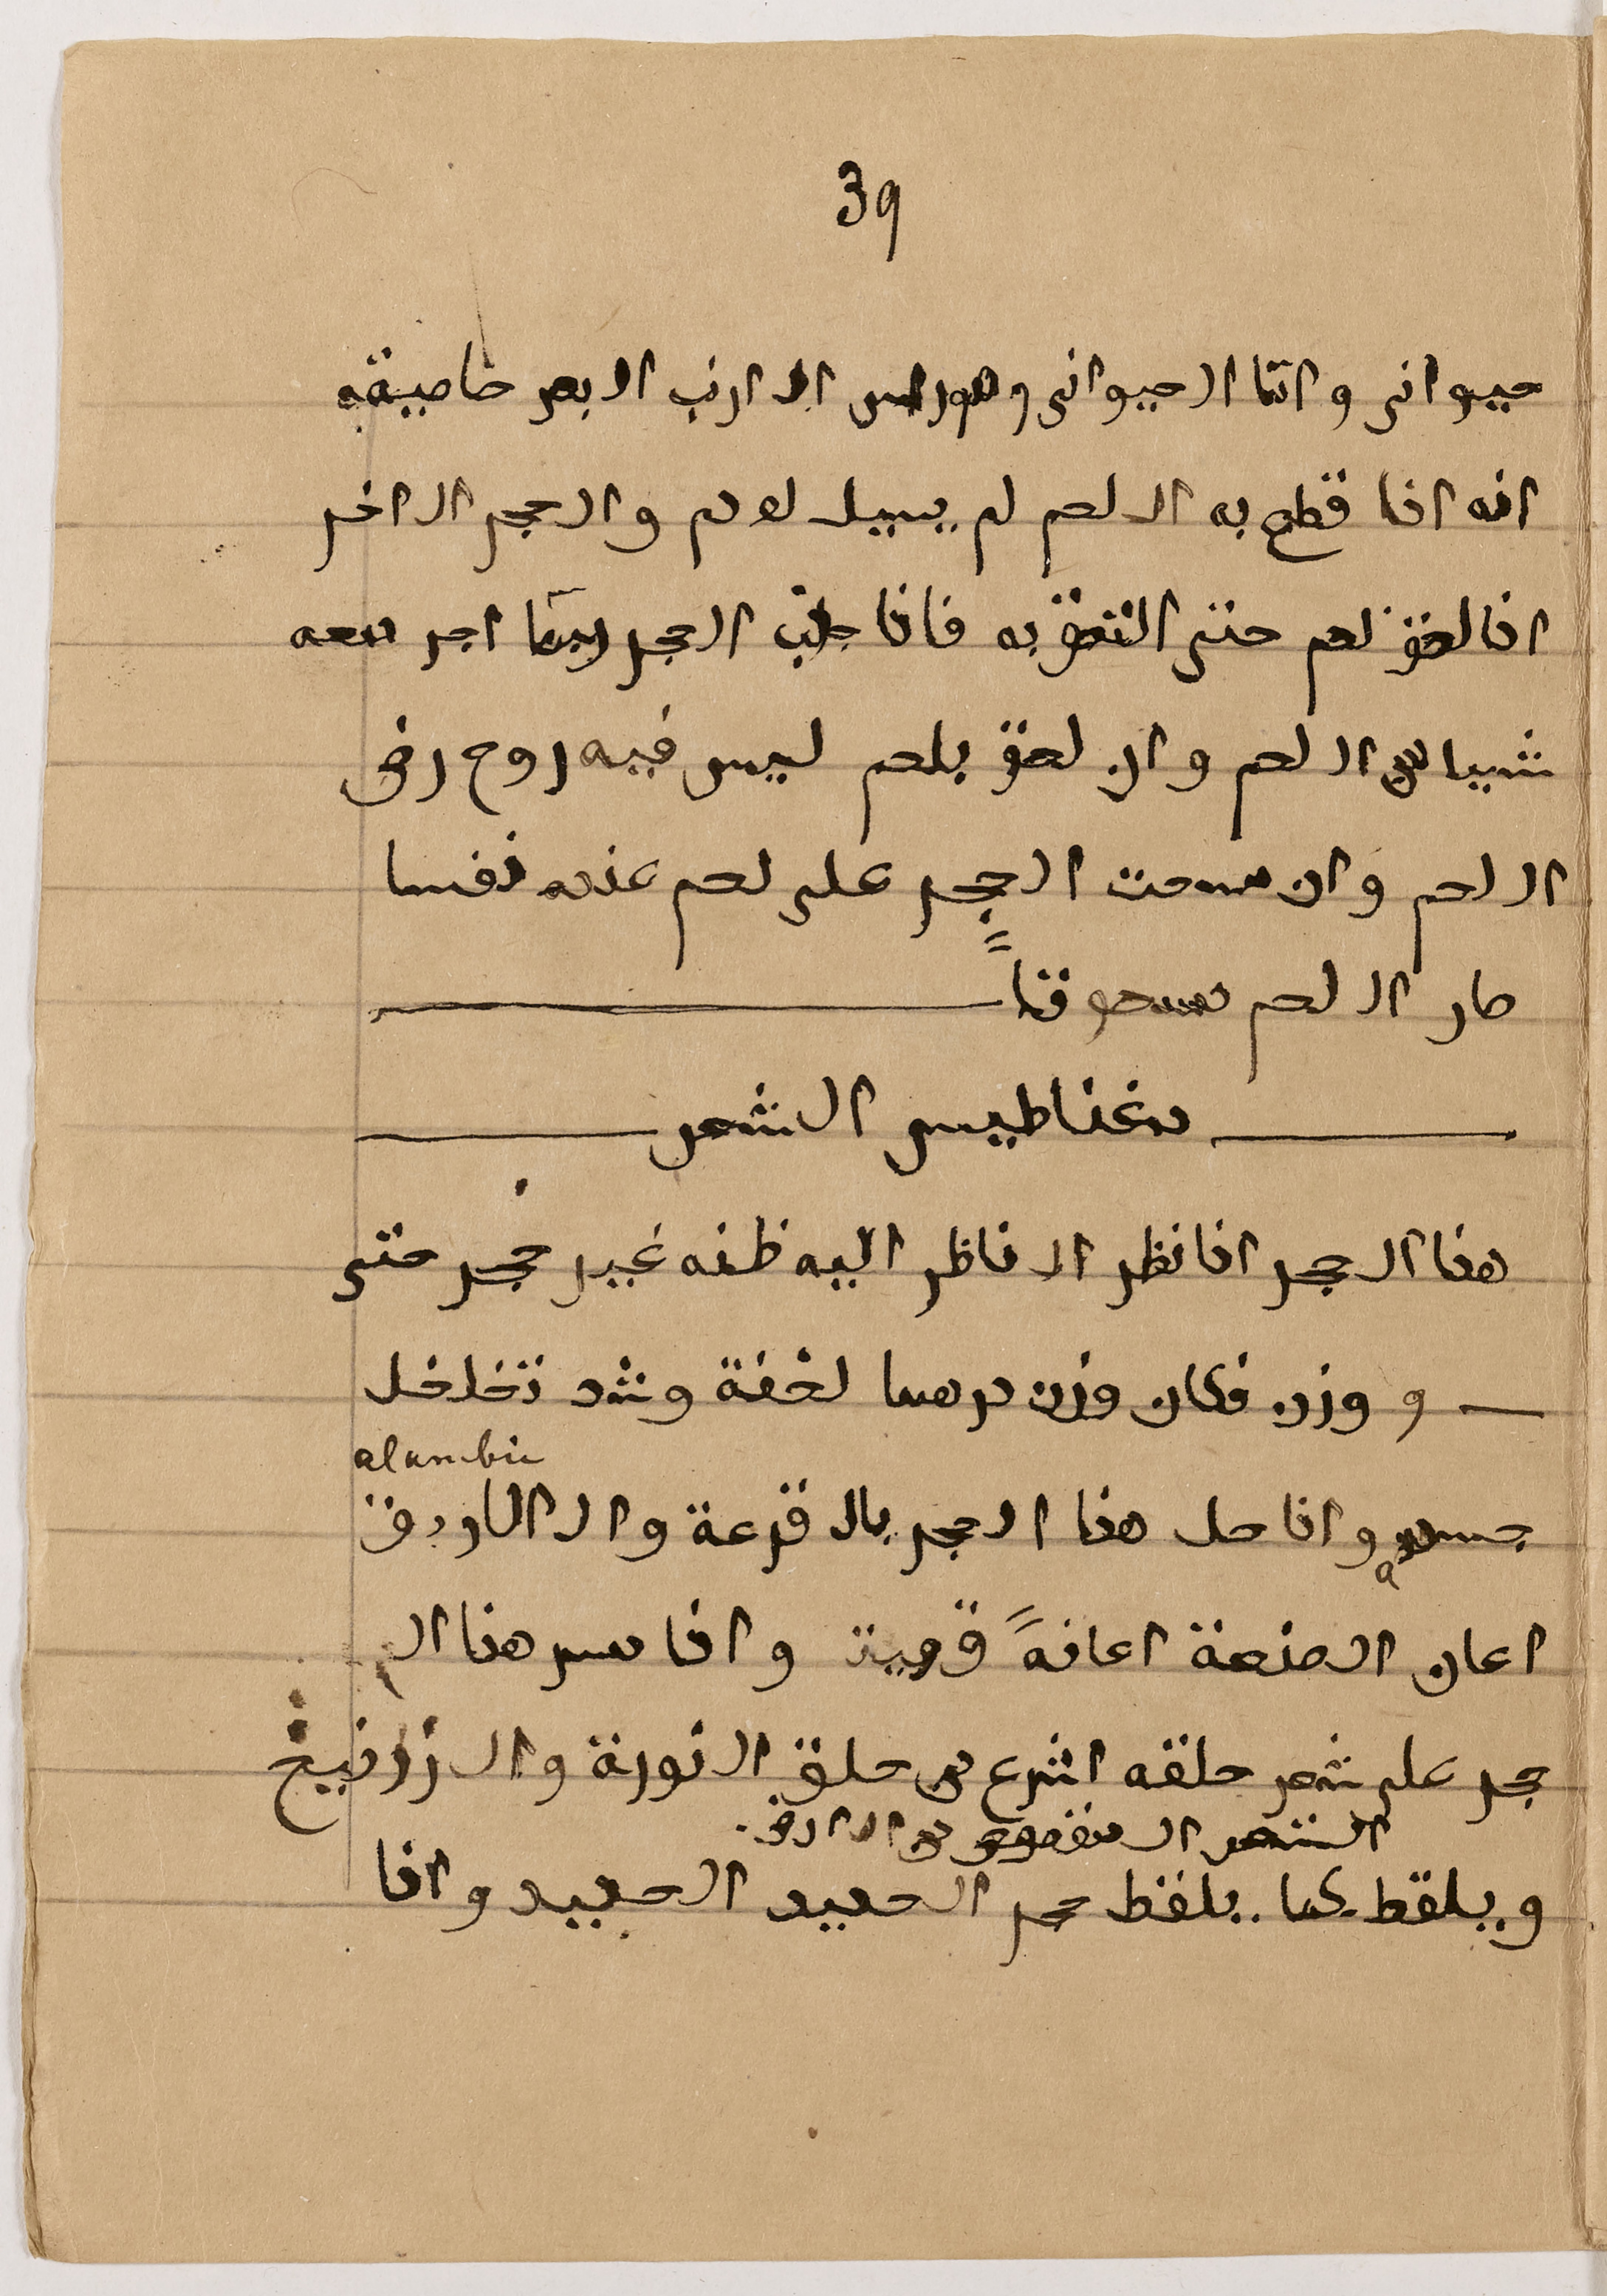 39
حيوانى واما الحيوانى وهو الارنب البحر خاصيته
انه اذا قطع به اللحم لم يسيل له دم والحجر الاخر
اذا لحق لحم حتى التحق به فاذا جذب الحجر ربما اجر معه
شيا من اللحم وان لحق بلحم ليس فيه روح رض
اللحم وان مسحت الحجر على لحم عنده نفسا
صار اللحم مسحوقاً
مغناطيس الشعر
هذا الحجر اذا نظر الناظر اليه ظنه غير حجر حتى
و وزن فكان وزن درهما لخفة وشد تخلخل
alambic
جسمه واذا حل هذا الحجر بالقرعة وال
اعان الصنعة اعانةً قوية واذا مس هذا الـ
حجر على شعر حلقه اشرع من حلق النورة والزرنيخ
الشعر المنفوض من الارض
ويلقط كما يلقط حجر الحديد الحديد واذا